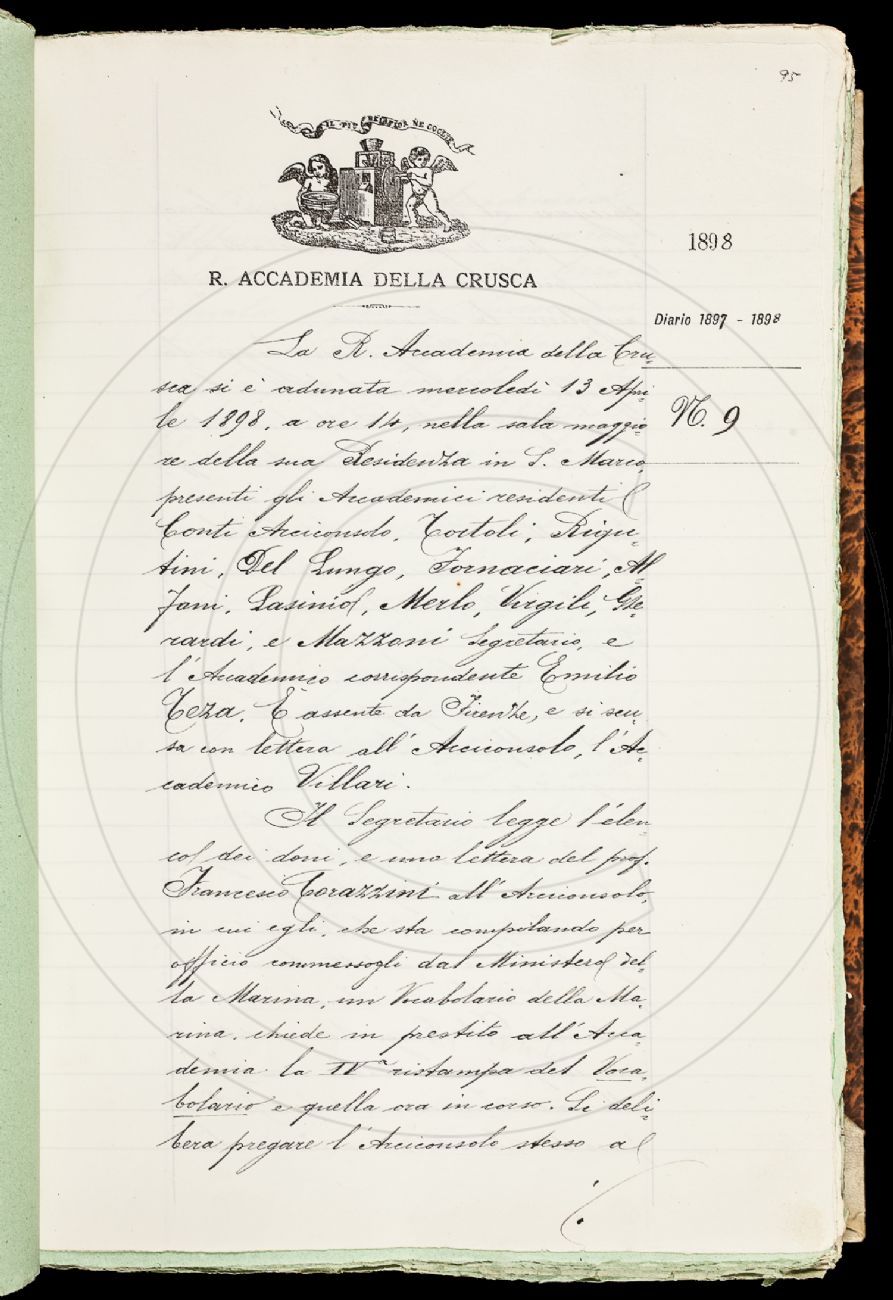 95
IL PIÙ BEL FIOR NE COGLIE
R. ACCADEMIA DELLA CRUSCA
1898
Diario 1897 - 1898
N. 9
La R. Accademia della Cru-
sca si è adunata mercoledì 13 Apri-
le 1898, a ore 14, nella sala maggio-
re della sua Residenza in S. Marco,
presenti gli Accademici residenti
Conti Arciconsolo, Tortoli, Rigu-
tini, Del Lungo, Fornaciari, Al-
fani, Pasinio, Merlo, Virgili, Ghe-
rardi, e Mazzoni Segretario, e
l'Accademico corrispondente Emilio
Teza. È assente da Firenze, e si scu-
sa con lettera all'Arciconsolo, l'Ac-
cademico Villari.
Il Segretario legge l'elen-
co dei doni, e una lettera del prof.
Francesco Corazzini all'Arciconsolo,
in cui egli, che sta compilando per
officio commessogli dal Ministero del-
la Marina, un Vocabolario della Ma-
rina, chiede in prestito all'Acca-
demia la IVa ristampa del Voca-
bolario e quella ora in corso. Si deli-
bera pregare l'Arciconsolo stesso a